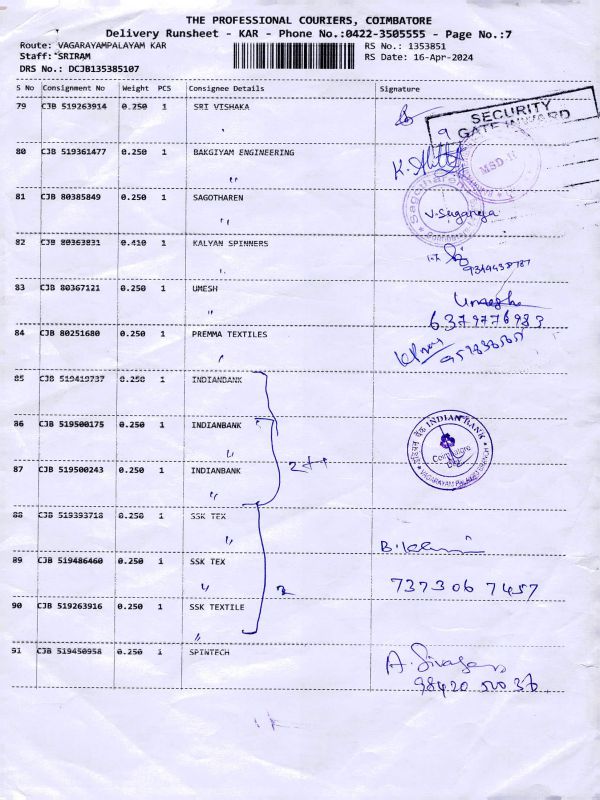 THE PROFESSIONAL COURIERS, COIMBATORE
Delivery Runsheet - KAR - Phone No.:0422-3505555 - Page No.:7
Route: VAGARAYAMPALAYAM KAR
RS No.: 1353851
Staff: SRIRAM
RS Date: 16-Apr-2024
DRS No.: DCJB135385107
S No Consignment No Weight PCS Consignee Details Signature
79 CJB 519263914 0.250 1 SRI VISHAKA
SECURITY
GATE INWARD
80 CJB 519361477 0.250 1 BAKGIYAM ENGINEERING
MSD-II
81 CJB 80385849 0.250 1 SAGOTHAREN
V. Suganya
82 CJB 80363831 0.410 1 KALYAN SPINNERS
83 CJB 80367121 0.250 1 UMESH
Umesh
6379776983
84 CJB 80251680 0.250 1 PREMMA TEXTILES
85 CJB 519419737 0.250 1 INDIANBANK
86 CJB 519500175 0.250 1 INDIANBANK
INDIAN BANK
Coimbatore
VAGARAYAM PALAYAM BRANCH
87 CJB 519500243 0.250 1 INDIANBANK
88 CJB 519393718 0.250 1 SSK TEX
89 CJB 519486460 0.250 1 SSK TEX
737306 7457
90 CJB 519263916 0.250 1 SSK TEXTILE
91 CJB 519450958 0.250 1 SPINTECH